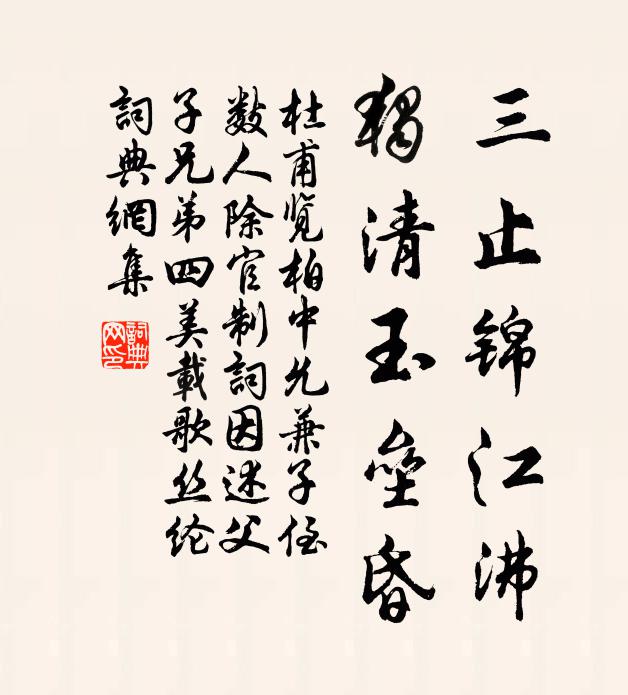 三止锦江沸
獨清玉壘昏
杜甫览柏中允兼子侄
数人除官制詞因述父
子兄弟四美載歌丝纶
詞典網集
詞典網印